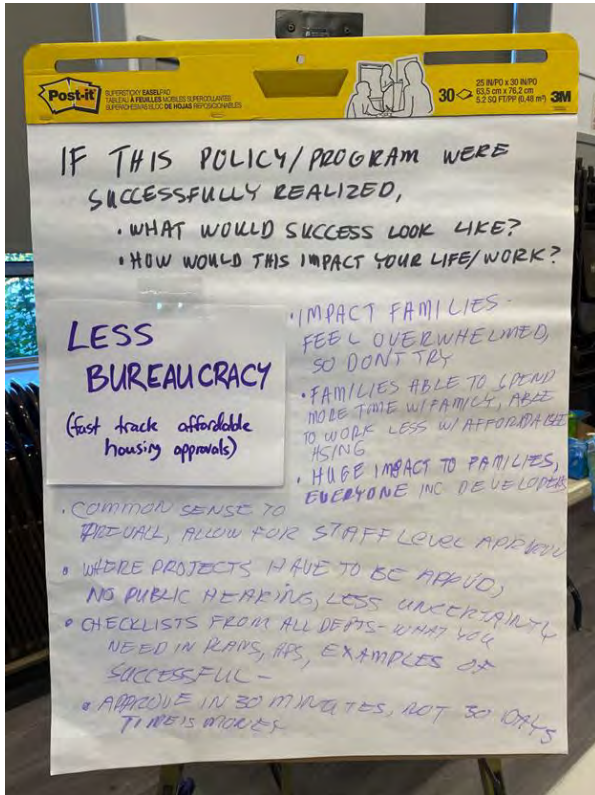 Post-it
SUPERSTICKY EASELPAD
TABLEAU À FEUILLES MOBILES SUPERCOLLANTES
SUPERADHESIVAS BLOC DE HOJAS REPOSICIONABLES
30
25 IN/PO x 30 IN/PO
63,5 cm x 76,2 cm
5.2 SQ FT/PP (0,48 m²)
3M
IF THIS POLICY/PROGRAM WERE
SUCCESSFULLY REALIZED,
• WHAT WOULD SUCCESS LOOK LIKE?
• HOW WOULD THIS IMPACT YOUR LIFE/WORK?
LESS
BUREAUCRACY
(fast track affordable
housing approvals)
• IMPACT FAMILIES -
FEEL OVERWHELMED,
SO DONT TRY
• FAMILIES ABLE TO SPEND
MORE TIME W/FAMILY, ABLE
TO WORK LESS W/ AFFORDABLE
HSING
• HUGE IMPACT TO FAMILIES,
EVERYONE INC DEVELOPERS
• COMMON SENSE TO
PREVAIL, ALLOW FOR STAFF LEVEL APPROV
• WHERE PROJECTS HAVE TO BE APPVD,
NO PUBLIC HEARING, LESS UNCERTAINTY
• CHECKLISTS FROM ALL DEPTS - WHAT YOU
NEED IN PLANS, APS, EXAMPLES OF
SUCCESSFUL -
• APPROVE IN 30 MINUTES, NOT 30 DAYS
TIME IS MONEY